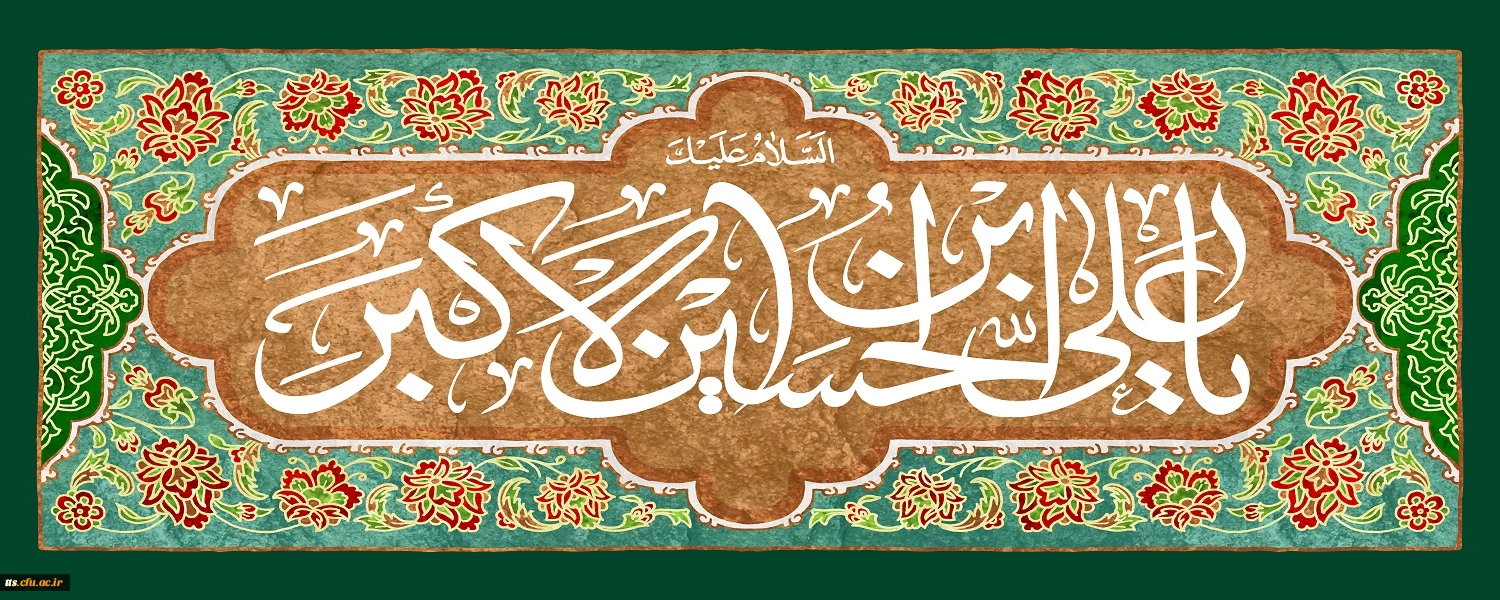 اَلسَّلامُ عَلَیْکَ
یا علی ابن الحسین الأکبر
tts.cfu.ac.ir